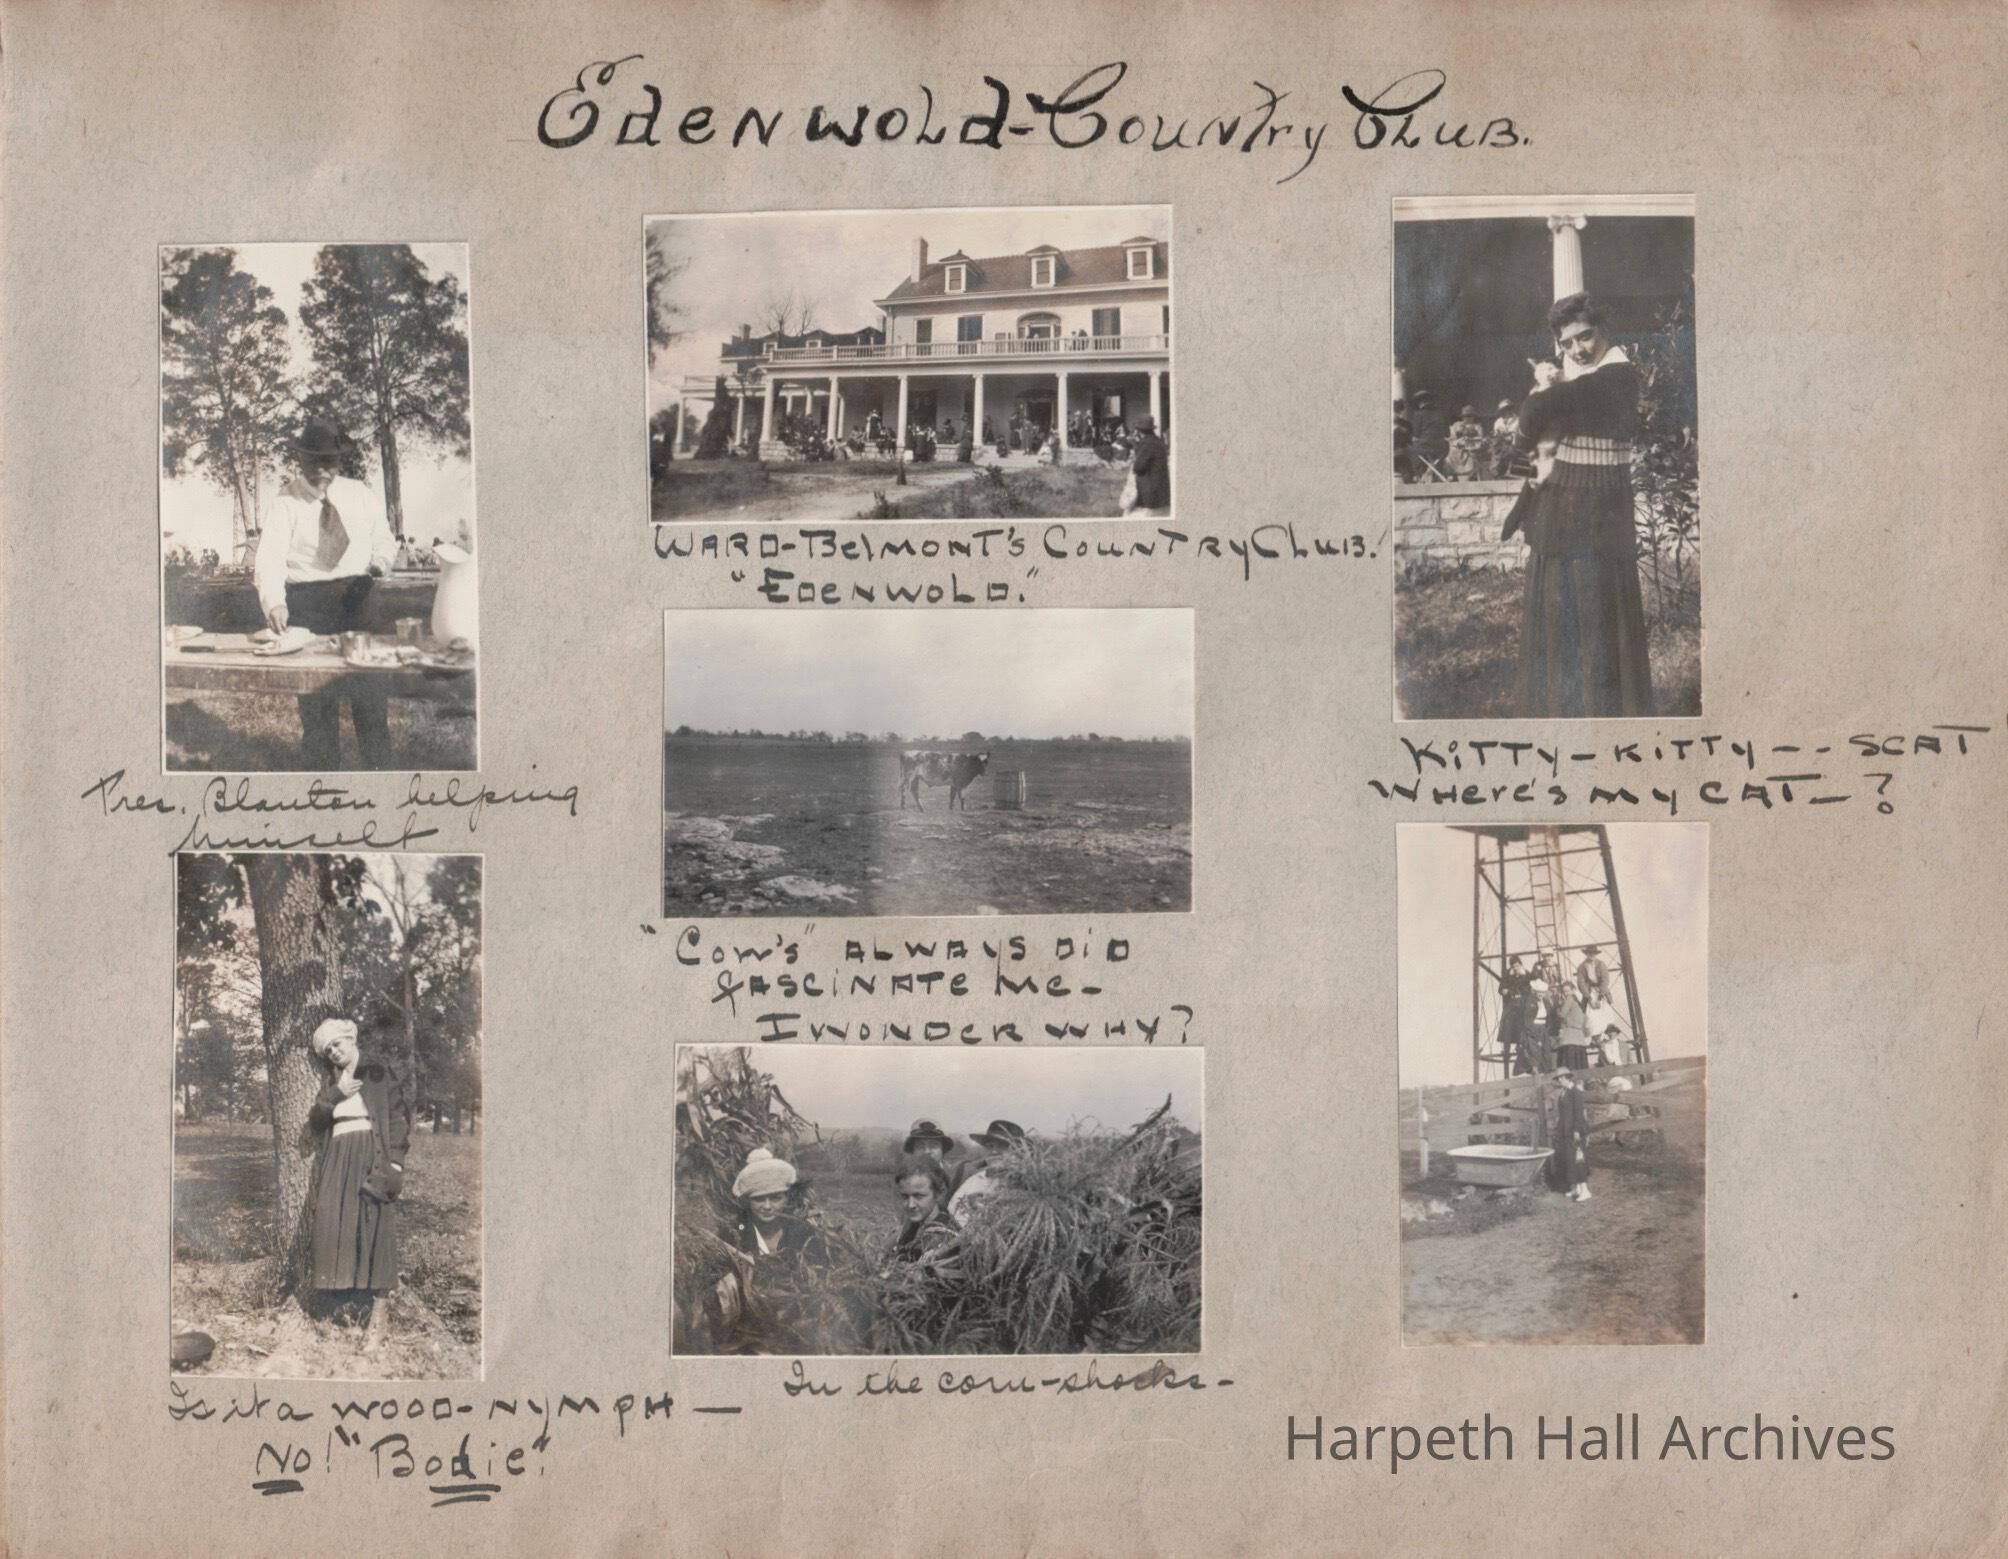 Edenwold-Country Club.
WARD-BelMONT'S COUNTRY CLUB.
"EDENWOLD."
Pres. Blanton helping
himself
KiTTy-KiTTy--- SCAT
WHere's My CAT-?
"Cow's" ALWAYS DiD
fASCiNATE Me-
I WONDER WHY?
In the corn-shocks-
Is it a WOOD-NYMPH —
No! "Bodie".
Harpeth Hall Archives